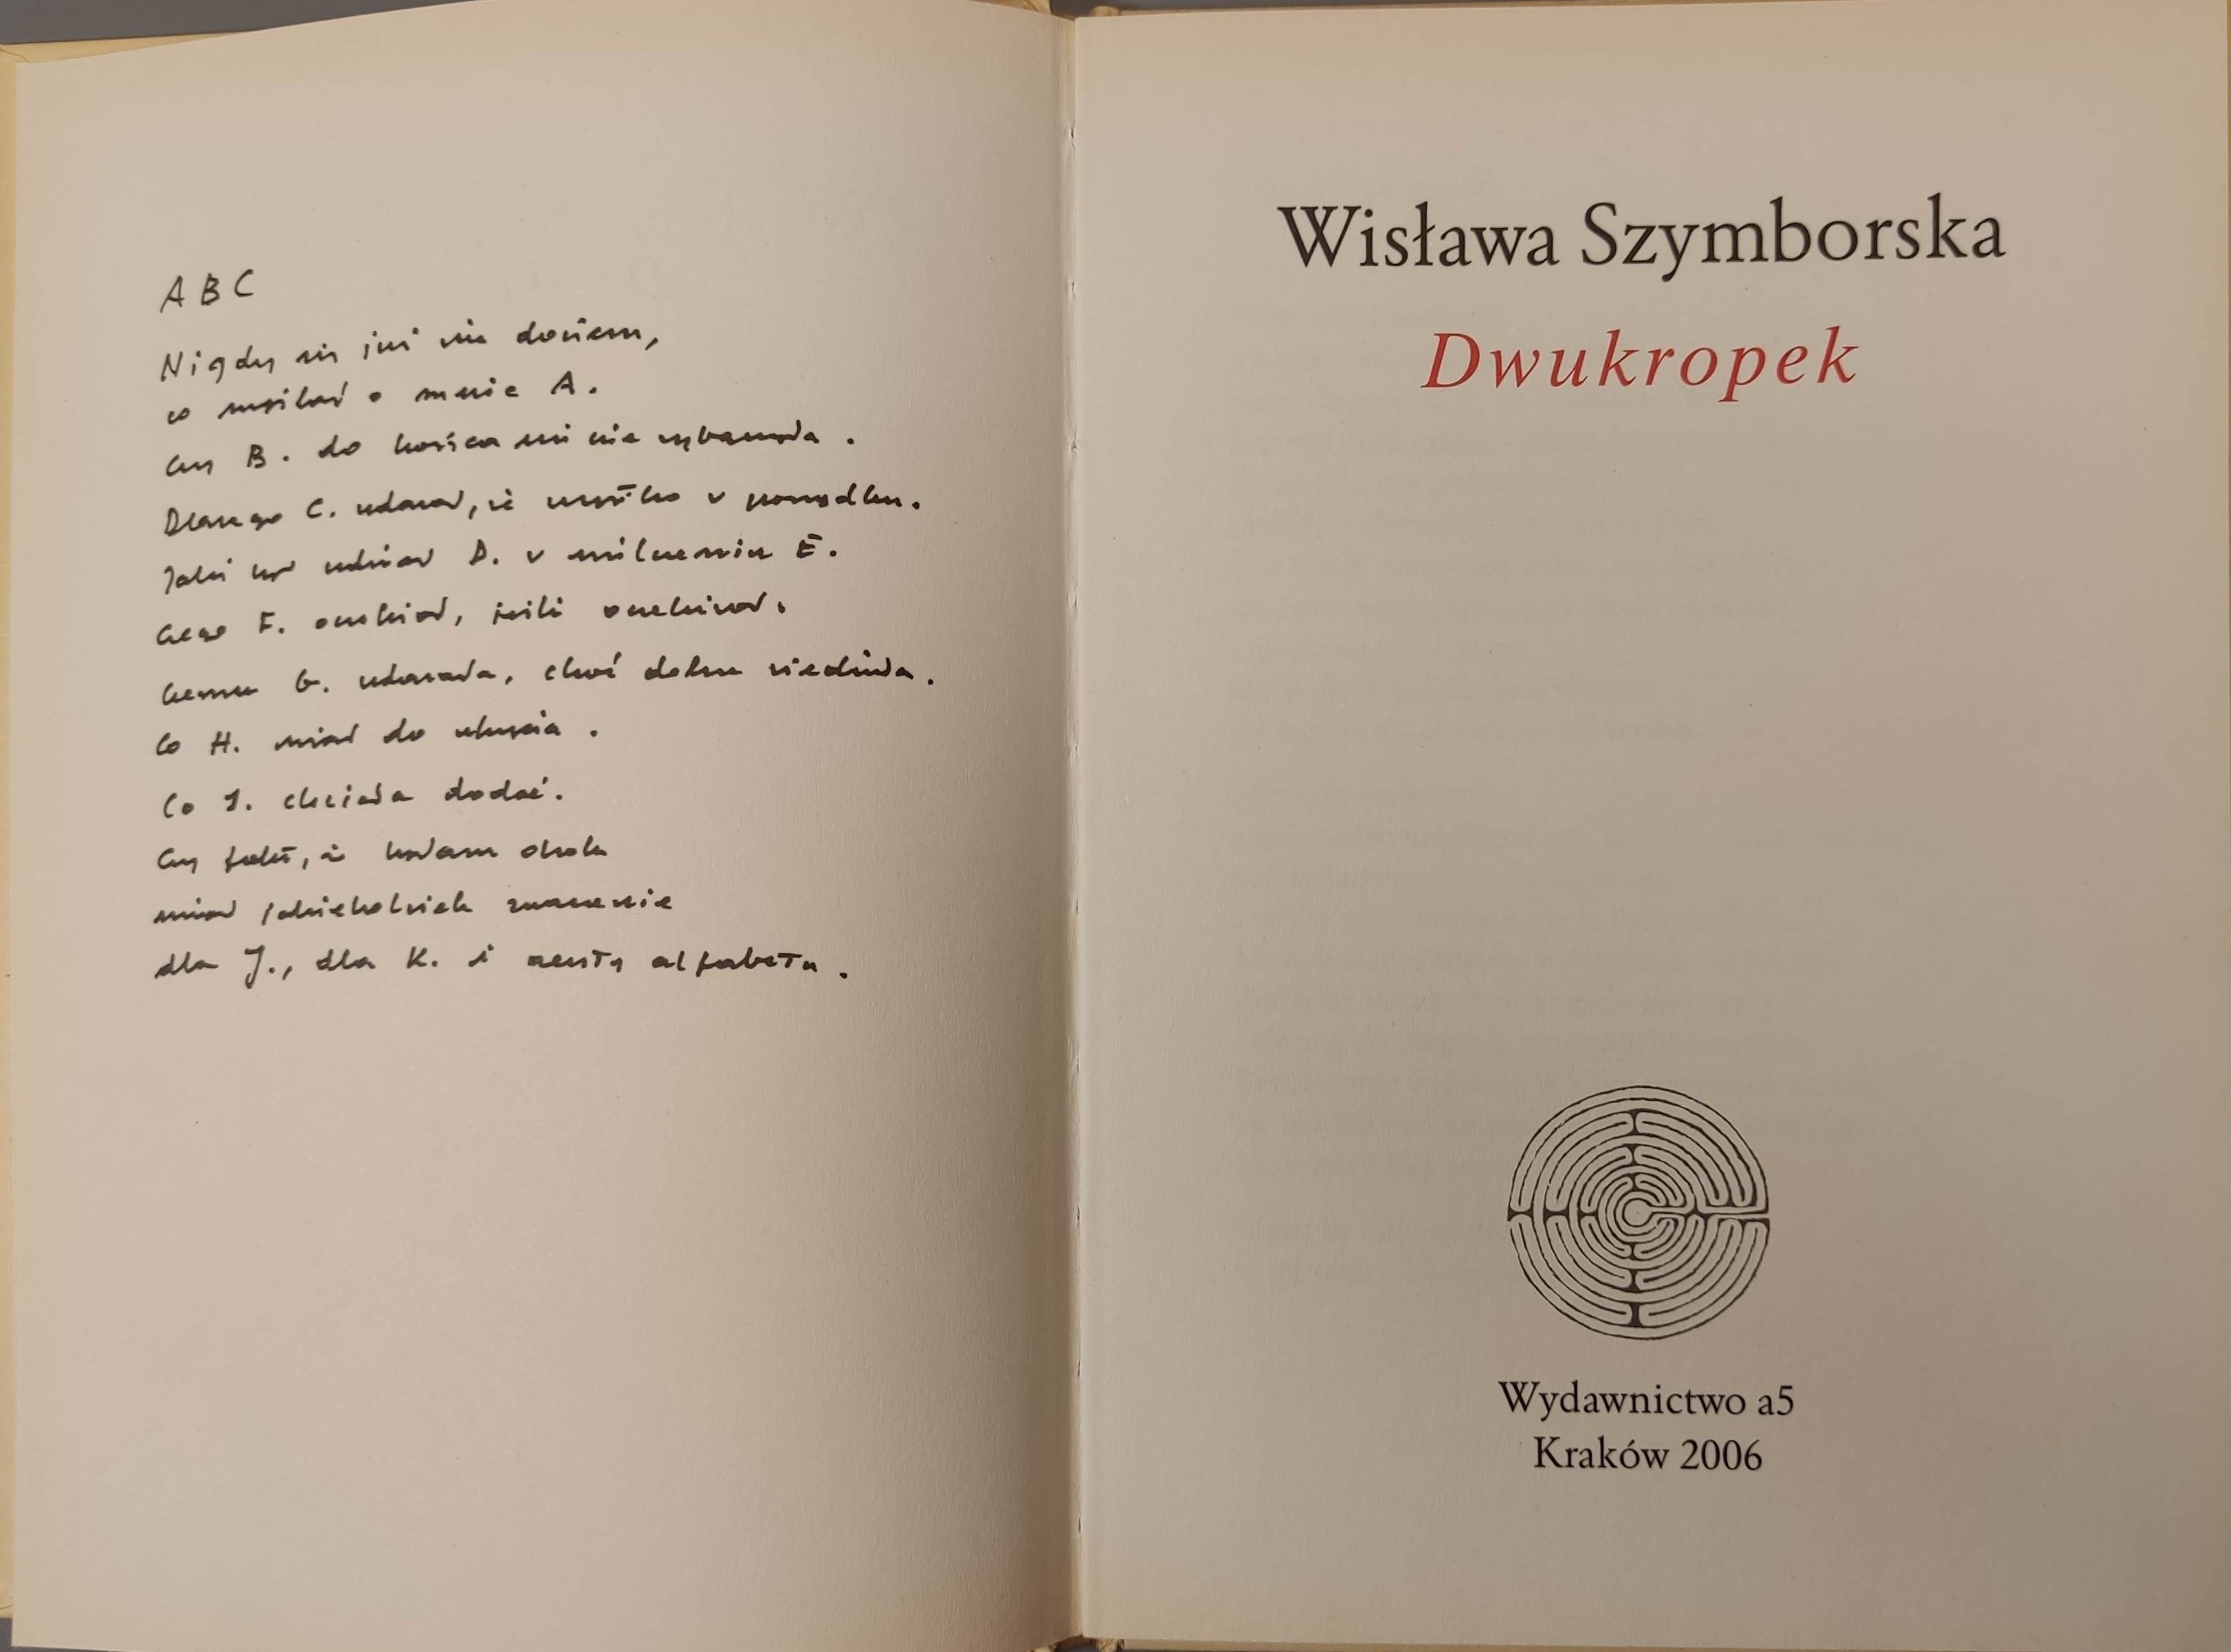 A B C
Nigdy się już nie dowiem,
co myślał o mnie A.
Czy B. do końca mi nie wybaczyła.
Dlaczego C. udawał, że wszystko w porządku.
Jaki był udział D. w milczeniu E.
Czego F. oczekiwał, jeśli oczekiwał.
Czemu G. udawała, choć dobrze wiedziała.
Co H. miał do ukrycia.
Co I. chciała dodać.
Czy fakt, że byłam obok
miał jakiekolwiek znaczenie
dla J., dla K. i reszty alfabetu.
Wisława Szymborska
Dwukropek
Wydawnictwo a5
Kraków 2006